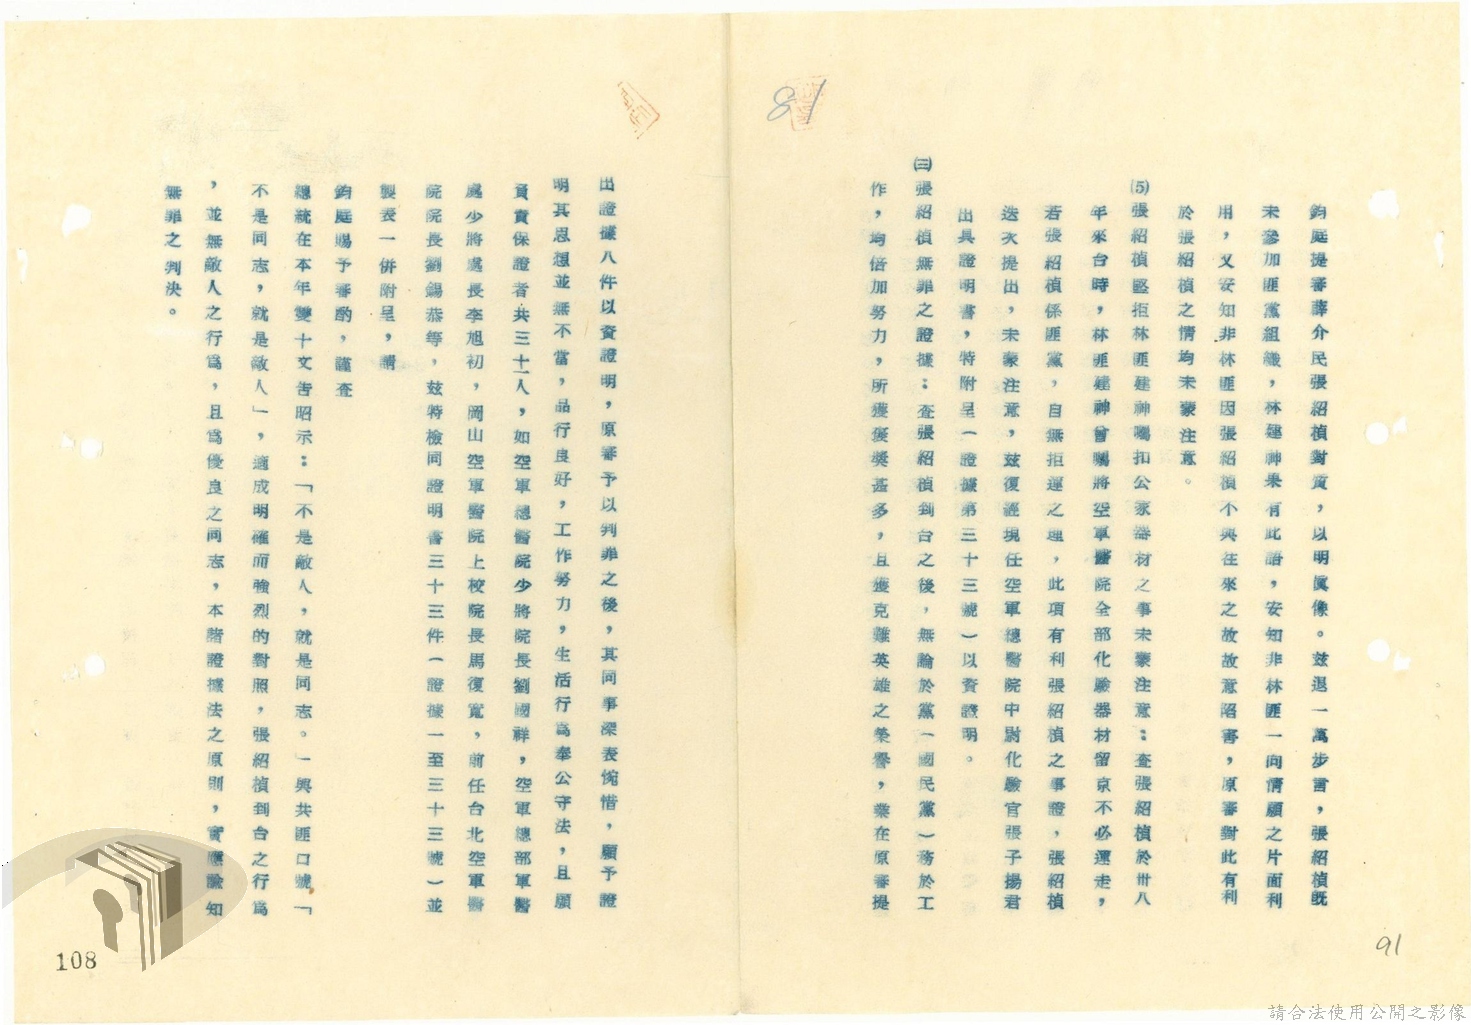 81
鈞庭提審薛介民張紹楨對質，以明眞像。玆退一萬步言，張紹楨既
未參加匪黨組織，林建神果有此語，安知非林匪一向情願之片面利
用，又安知非林匪因張紹楨不與往來之故故意陷害，原審對此有利
於張紹楨之情均未蒙注意。
⑸張紹楨堅拒林匪建神囑扣公家器材之事未蒙注意：查張紹楨於卅八
年來台時，林匪建神曾囑將空軍醫院全部化驗器材留京不必運走，
若張紹楨係匪黨，自無拒運之理，此項有利張紹楨之事證，張紹楨
迭次提出，未蒙注意，玆復經現任空軍總醫院中尉化驗官張子揚君
出具證明書，特附呈（證據第三十三號）以資證明。
㈢張紹楨無罪之證據：查張紹楨到台之後，無論於黨（國民黨）務於工
作，均倍加努力，所獲褒獎甚多，且獲克難英雄之榮譽，業在原審提
91
出證據八件以資證明，原審予以判罪之後，其同事深表惋惜，願予證
明其思想並無不當，品行良好，工作努力，生活行爲奉公守法，且願
負責保證者共三十一人，如空軍總醫院少將院長劉國祥，空軍總部軍醫
處少將處長李旭初，岡山空軍醫院上校院長馬復寬，前任台北空軍醫
院院長劉錫恭等，玆特檢同證明書三十三件（證據一至三十三號）並
製表一併附呈，請
鈞庭賜予審酌，謹查
總統在本年雙十文告昭示：「不是敵人，就是同志。」與共匪口號「
不是同志，就是敵人」，適成明確而強烈的對照，張紹楨到台之行爲
，並無敵人之行爲，且爲優良之同志，本諸證據法之原則，實應諭知
無罪之判決。
108
請合法使用公開之影像